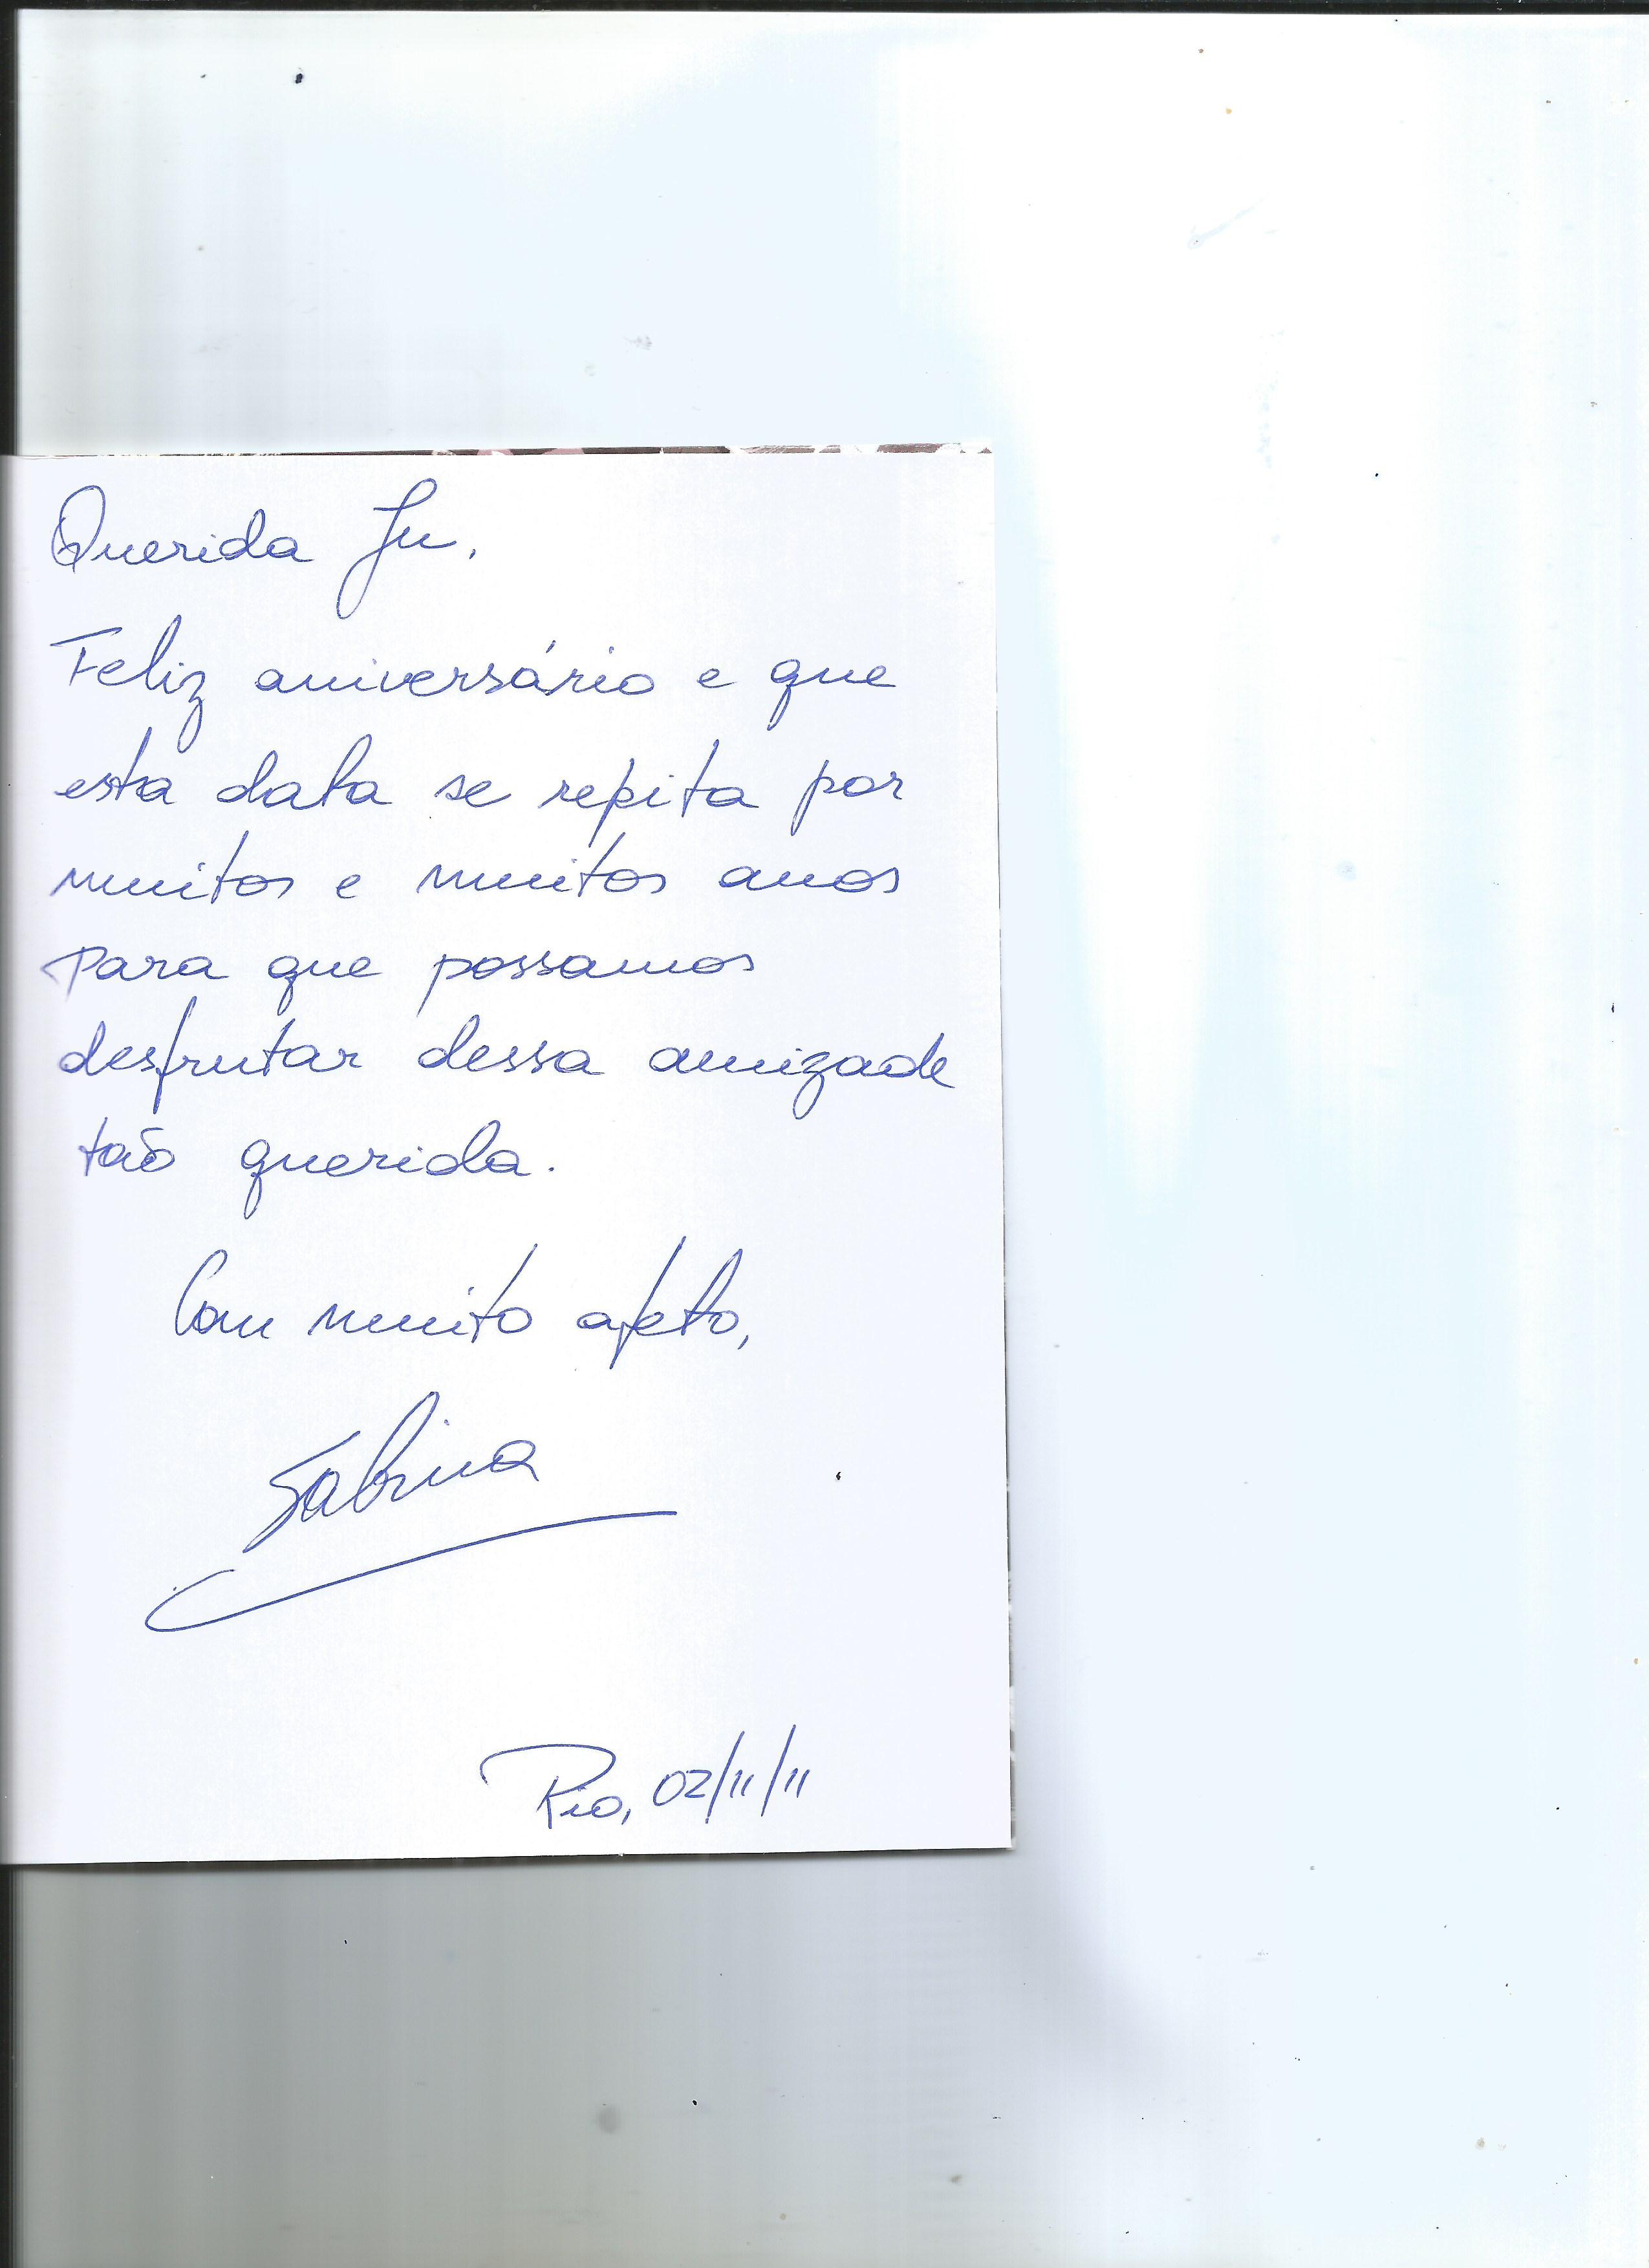 Querida Ju,
Feliz aniversário e que
esta data se repita por
muitos e muitos anos
para que possamos
desfrutar dessa amizade
tão querida.
Com muito afeto,
Sabrina
Rio, 02/11/11